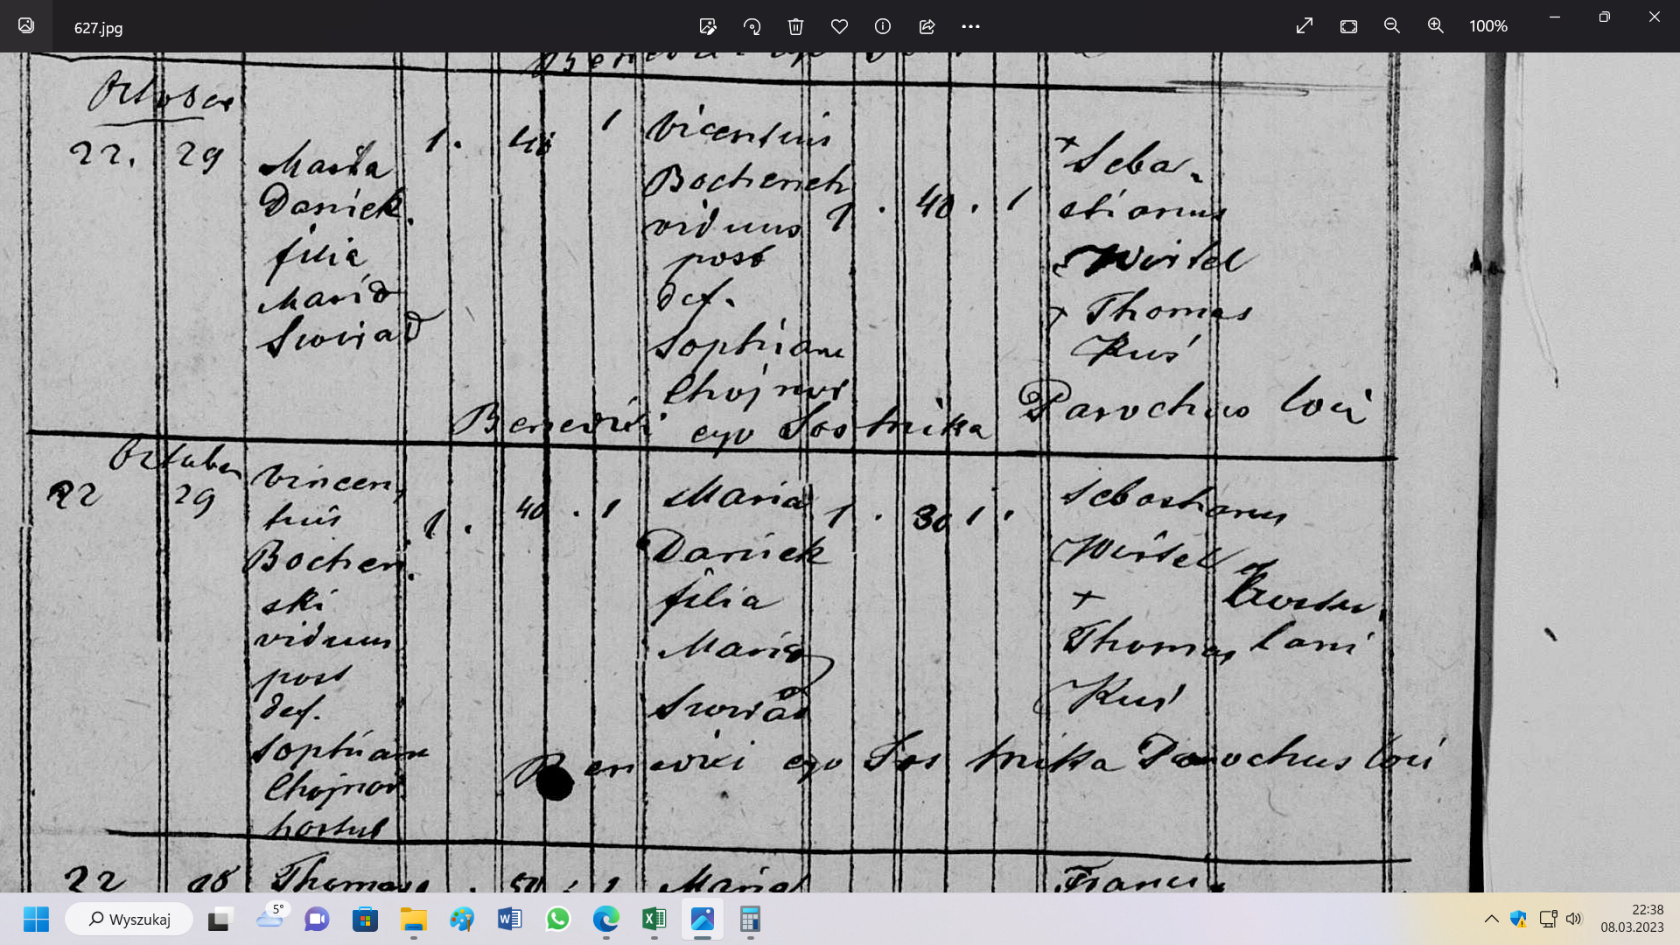 627.jpg
100%
October
22. 29
Maria
Daniek.
filia
Maria
Sowiad
1. 40 1
Vicentius
Bochensk
viduus
post
def.
Sophiam
Chojnow
1. 40. 1
+ Seba
stianus
Wirtel
+ Thomas
Kuś
Benedixi ego Parochus loci
October
22 29
Vincen
tius
Bochen.
ski
viduus
post
def.
Sophiam
Chojnow.
1. 40. 1
Maria
Daniek
filia
Maria
Sowiad
1. 30 1.
Sebastianus
Wirtel
+
Thomas
Kuś
Benedixi ego Parochus loci
22
Thomas
1
Maria
Franci
5°
Wyszukaj
22:38
08.03.2023